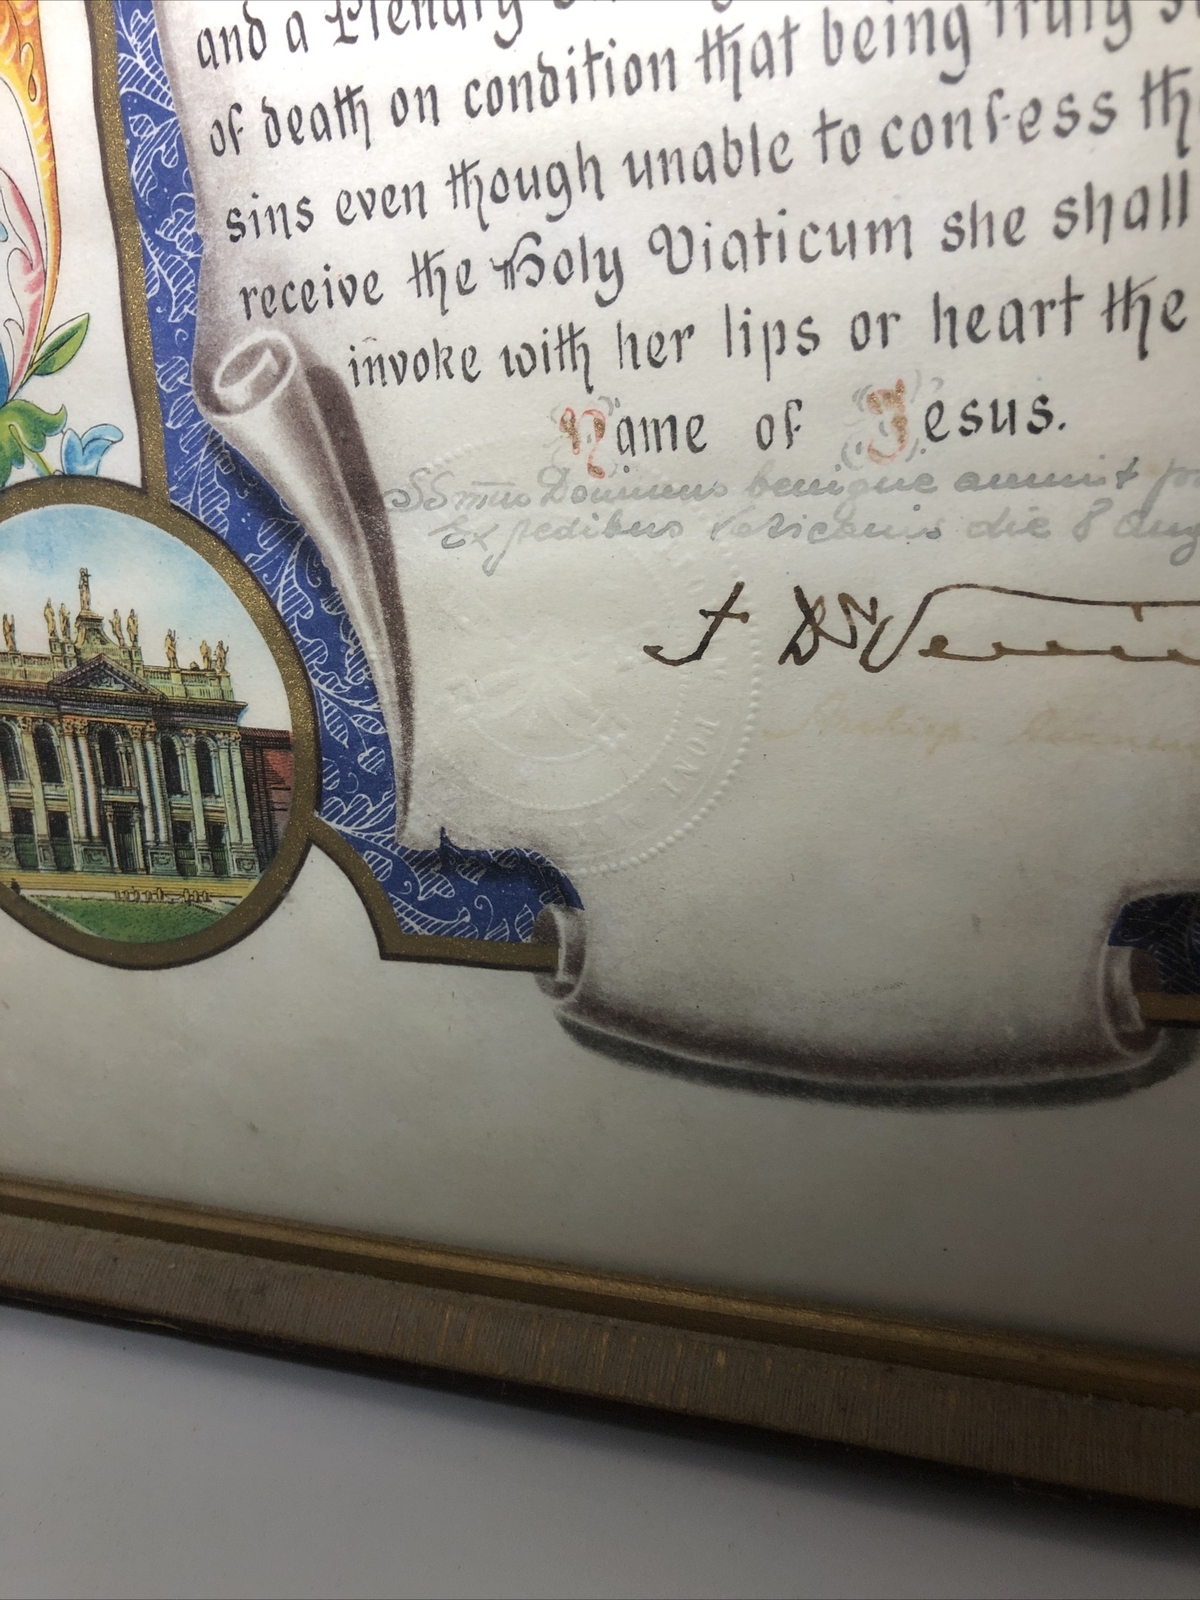 and a Plenary
of death on condition that being truly
sins even though unable to confess th
receive the Holy Viaticum she shall
invoke with her lips or heart the
Name of Jesus.
Ssmus Dominus benigne annuit
Ex Aedibus Vaticanis die 8 Aug